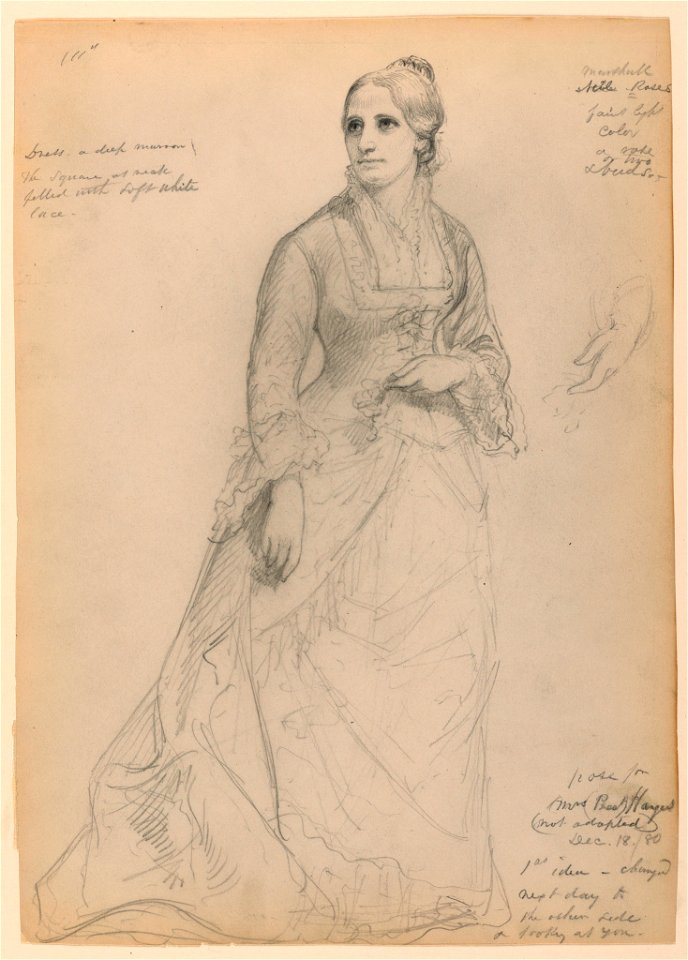 Dress - a deep maroon
the square at neck
filled with soft white
lace -
Marshall
Roses
faint light
color
a rose
or two
pose for
Mrs
(not adopted)
Dec. 18 / 80
1st idea - changed
next day to
the other side
or looking at you -